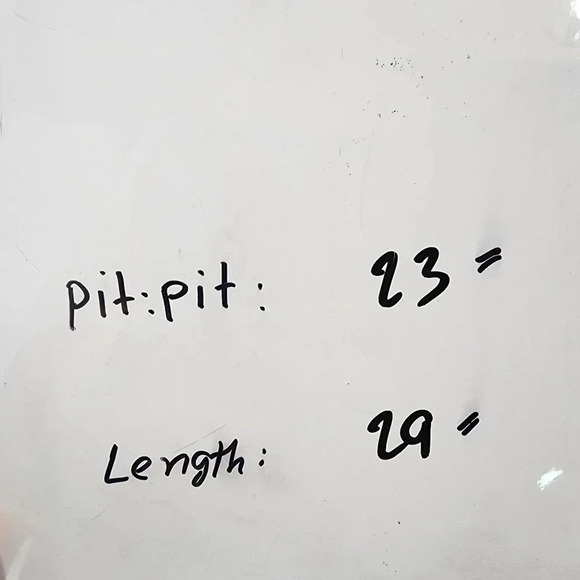 pit:pit: 23"
Length: 29"